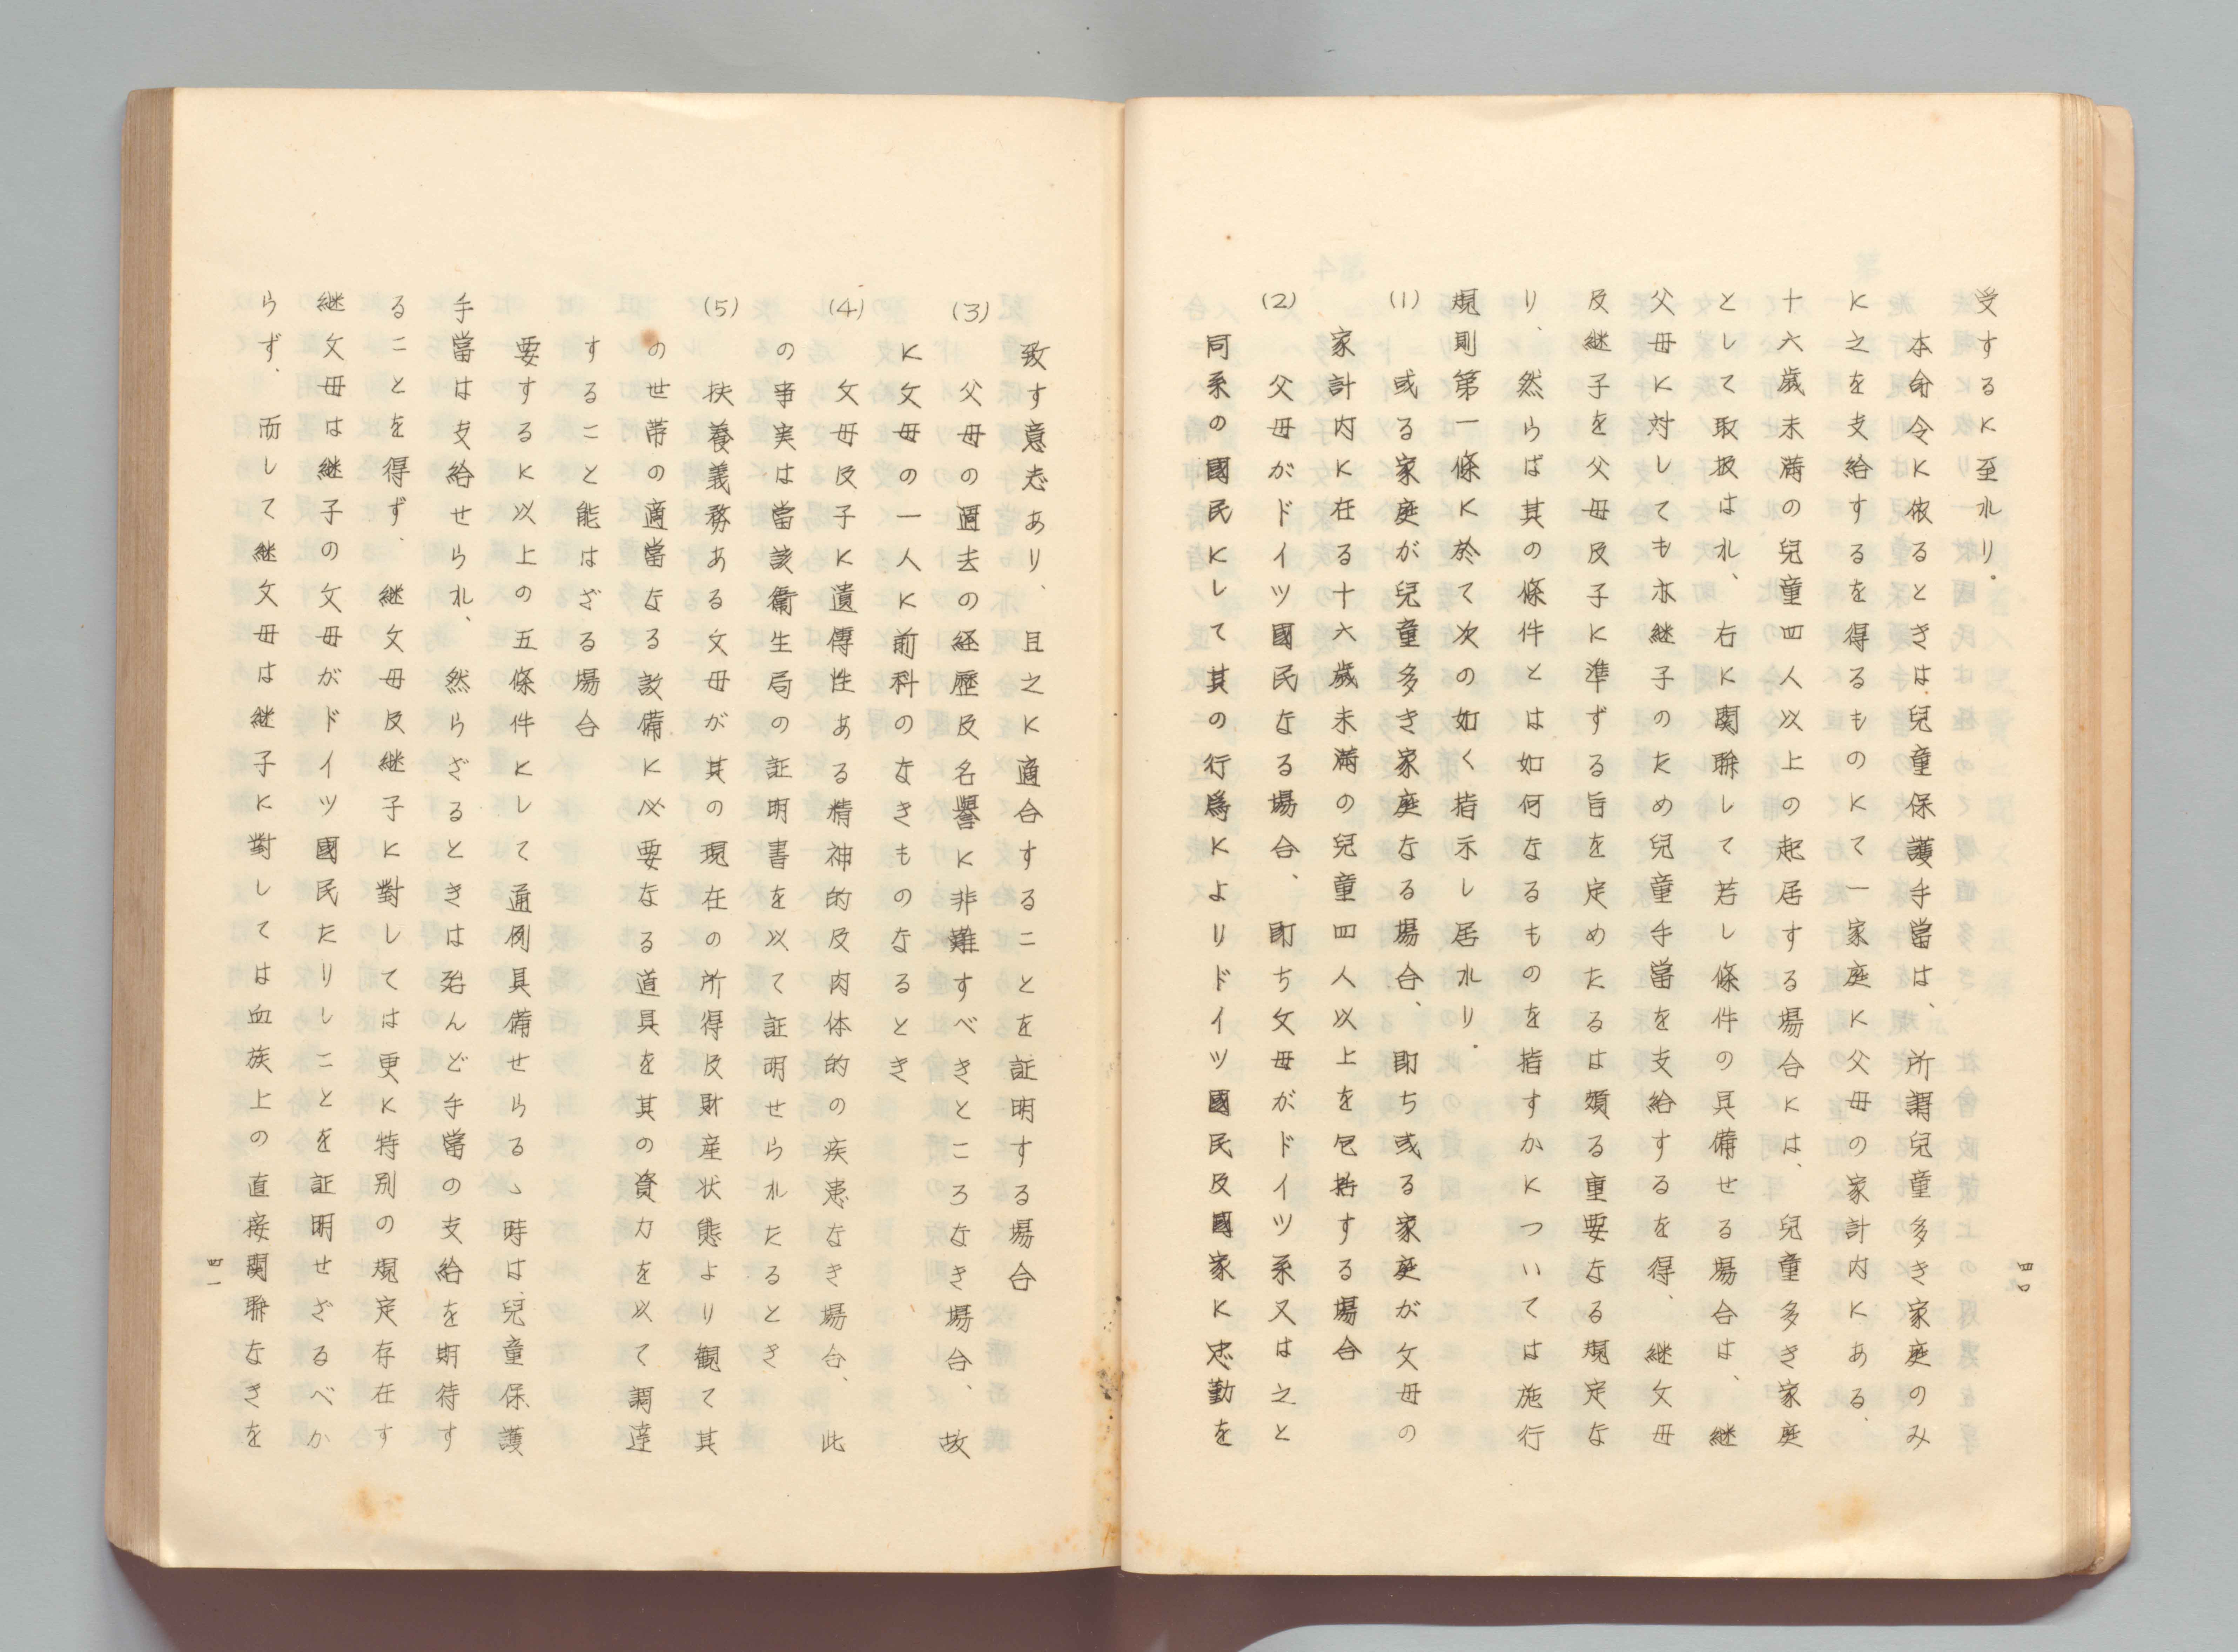 受するに至れり。
本命令に依るときは兒童保護手當は、所謂兒童多き家庭のみ
に之を支給するを得るものにて一家庭に父母の家計内にある、
十六歳未満の兒童四人以上の起居する場合には、兒童多き家庭
として取扱はれ、右に関聯して若し條件の具備せる場合は、継
父母に対しても亦継子のため兒童手當を支給するを得、継父母
及継子を父母及子に準ずる旨を定めたるは頗る重要なる規定な
り、然らば其の條件とは如何なるものを指すかについては施行
規則第一條に於て次の如く指示し居れり。
(1) 或る家庭が兒童多き家庭なる場合、即ち或る家庭が父母の
家計内に在る十六歳未満の兒童四人以上を包括する場合
(2) 父母がドイツ國民なる場合、即ち父母がドイツ系又は之と
同系の國民にして其の行爲によりドイツ國民及國家に忠勤を
四〇
致す意志あり、且之に適合することを証明する場合
(3) 父母の過去の経歴及名譽に非難すべきところなき場合、故
に父母の一人に前科のなきものなるとき
(4) 父母及子に遺傳性ある精神的及肉体的の疾患なき場合、此
の事実は當該衞生局の証明書を以て証明せられたるとき
(5) 扶養義務ある父母が其の現在の所得及財産状態より観て其
の世帯の適當なる設備に必要なる道具を其の資力を以て調達
すること能はざる場合
要するに以上の五條件にして通例具備せらるゝ時は兒童保護
手當は支給せられ、然らざるときは殆んど手當の支給を期待す
ることを得ず、継父母及継子に對しては更に特別の規定存在す
継父母は継子の父母がドイツ國民たりしことを証明せざるべか
らず、而して継父母は継子に對しては血族上の直接関聯なきを
四一